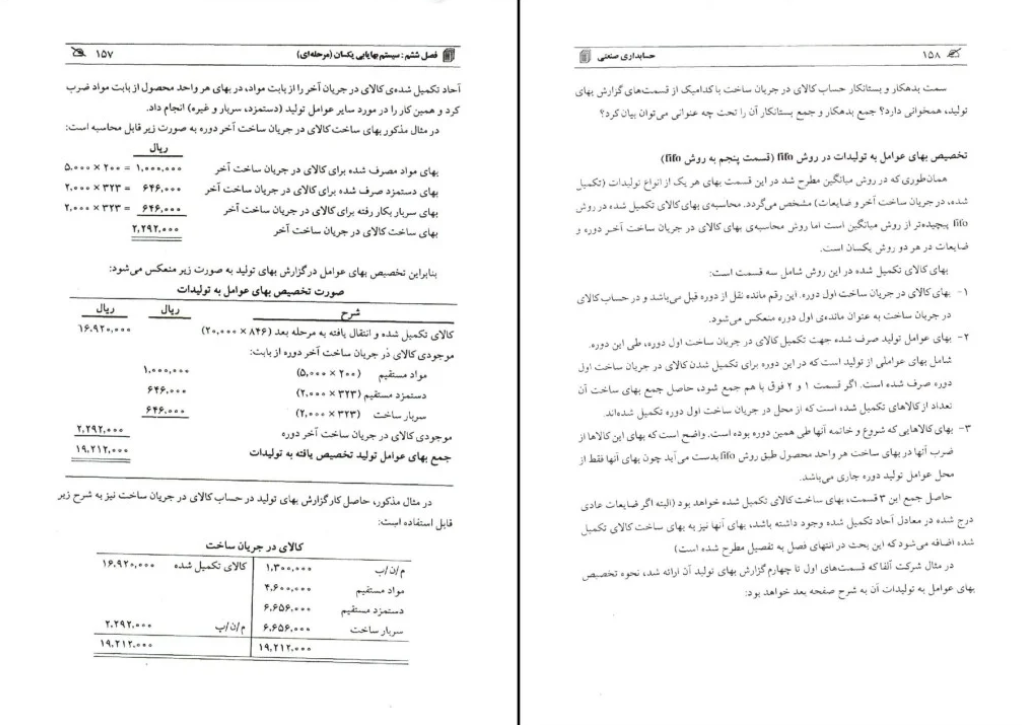 فصل ششم : سیستم بهایابی یکسان (مرحله‌ای) ۱۵۷
آحاد تکمیل شده‌ی کالای در جریان آخر را از بابت مواد، در بهای هر واحد محصول از بابت مواد ضرب
کرد و همین کار را در مورد سایر عوامل تولید (دستمزد، سربار و غیره) انجام داد.
در مثال مذکور بهای ساخت کالای در جریان ساخت آخر دوره به صورت زیر قابل محاسبه است:
ریال
بهای مواد مصرف شده برای کالای در جریان ساخت آخر ۱,۰۰۰,۰۰۰ = ۲۰۰ × ۵,۰۰۰
بهای دستمزد صرف شده برای کالای در جریان ساخت آخر ۶۴۶,۰۰۰ = ۳۲۳ × ۲,۰۰۰
بهای سربار بکار رفته برای کالای در جریان ساخت آخر ۶۴۶,۰۰۰ = ۳۲۳ × ۲,۰۰۰
بهای ساخت کالای در جریان ساخت آخر ۲,۲۹۲,۰۰۰
بنابراین تخصیص بهای عوامل در گزارش بهای تولید به صورت زیر منعکس می‌شود:
صورت تخصیص بهای عوامل به تولیدات
شرح ریال ریال
کالای تکمیل شده و انتقال یافته به مرحله بعد (۸۴۶ × ۲۰,۰۰۰) ۱۶,۹۲۰,۰۰۰
موجودی کالای در جریان ساخت آخر دوره از بابت:
مواد مستقیم (۲۰۰ × ۵,۰۰۰) ۱,۰۰۰,۰۰۰
دستمزد مستقیم (۳۲۳ × ۲,۰۰۰) ۶۴۶,۰۰۰
سربار ساخت (۳۲۳ × ۲,۰۰۰) ۶۴۶,۰۰۰
موجودی کالای در جریان ساخت آخر دوره ۲,۲۹۲,۰۰۰
جمع بهای عوامل تولید تخصیص یافته به تولیدات ۱۹,۲۱۲,۰۰۰
در مثال مذکور، حاصل کار گزارش بهای تولید در حساب کالای در جریان ساخت نیز به شرح زیر
قابل استفاده است:
کالای در جریان ساخت
م/ن/ب ۱,۳۰۰,۰۰۰ کالای تکمیل شده ۱۶,۹۲۰,۰۰۰
مواد مستقیم ۴,۶۰۰,۰۰۰
دستمزد مستقیم ۶,۶۵۶,۰۰۰
سربار ساخت ۶,۶۵۶,۰۰۰ م/ن/ب ۲,۲۹۲,۰۰۰
۱۹,۲۱۲,۰۰۰ ۱۹,۲۱۲,۰۰۰
۱۵۸ حسابداری صنعتی
سمت بدهکار و بستانکار حساب کالای در جریان ساخت با کدامیک از قسمت‌های گزارش بهای
تولید، همخوانی دارد؟ جمع بدهکار و جمع بستانکار آن را تحت چه عنوانی می‌توان بیان کرد؟
تخصیص بهای عوامل به تولیدات در روش fifo (قسمت پنجم به روش fifo)
همان‌طوری که در روش میانگین مطرح شد در این قسمت بهای هر یک از انواع تولیدات (تکمیل
شده، در جریان ساخت آخر و ضایعات) مشخص می‌گردد. محاسبه‌ی بهای کالای تکمیل شده در روش
fifo پیچیده‌تر از روش میانگین است اما روش محاسبه‌ی بهای کالای در جریان ساخت آخر دوره و
ضایعات در هر دو روش یکسان است.
بهای کالای تکمیل شده در این روش شامل سه قسمت است:
۱- بهای کالای در جریان ساخت اول دوره. این رقم مانده نقل از دوره قبل می‌باشد و در حساب کالای
در جریان ساخت به عنوان مانده‌ی اول دوره منعکس می‌شود.
۲- بهای عوامل تولید صرف شده جهت تکمیل کالای در جریان ساخت اول دوره، طی این دوره.
شامل بهای عواملی از تولید است که در این دوره برای تکمیل شدن کالای در جریان ساخت اول
دوره صرف شده است. اگر قسمت ۱ و ۲ فوق با هم جمع شود، حاصل جمع بهای ساخت آن
تعداد از کالاهای تکمیل شده است که از محل در جریان ساخت اول دوره تکمیل شده‌اند.
۳- بهای کالاهایی که شروع و خاتمه آنها طی همین دوره بوده است. واضح است که بهای این کالاها از
ضرب آنها در بهای ساخت هر واحد محصول طبق روش fifo بدست می‌آید چون بهای آنها فقط از
محل عوامل تولید دوره جاری می‌باشد.
حاصل جمع این ۳ قسمت، بهای ساخت کالای تکمیل شده خواهد بود (البته اگر ضایعات عادی
درج شده در معادل آحاد تکمیل شده وجود داشته باشد، بهای آنها نیز به بهای ساخت کالای تکمیل
شده اضافه می‌شود که این بحث در انتهای فصل به تفصیل مطرح شده است)
در مثال شرکت آلفا که قسمت‌های اول تا چهارم گزارش بهای تولید آن ارائه شد، نحوه تخصیص
بهای عوامل به تولیدات آن به شرح صفحه بعد خواهد بود: